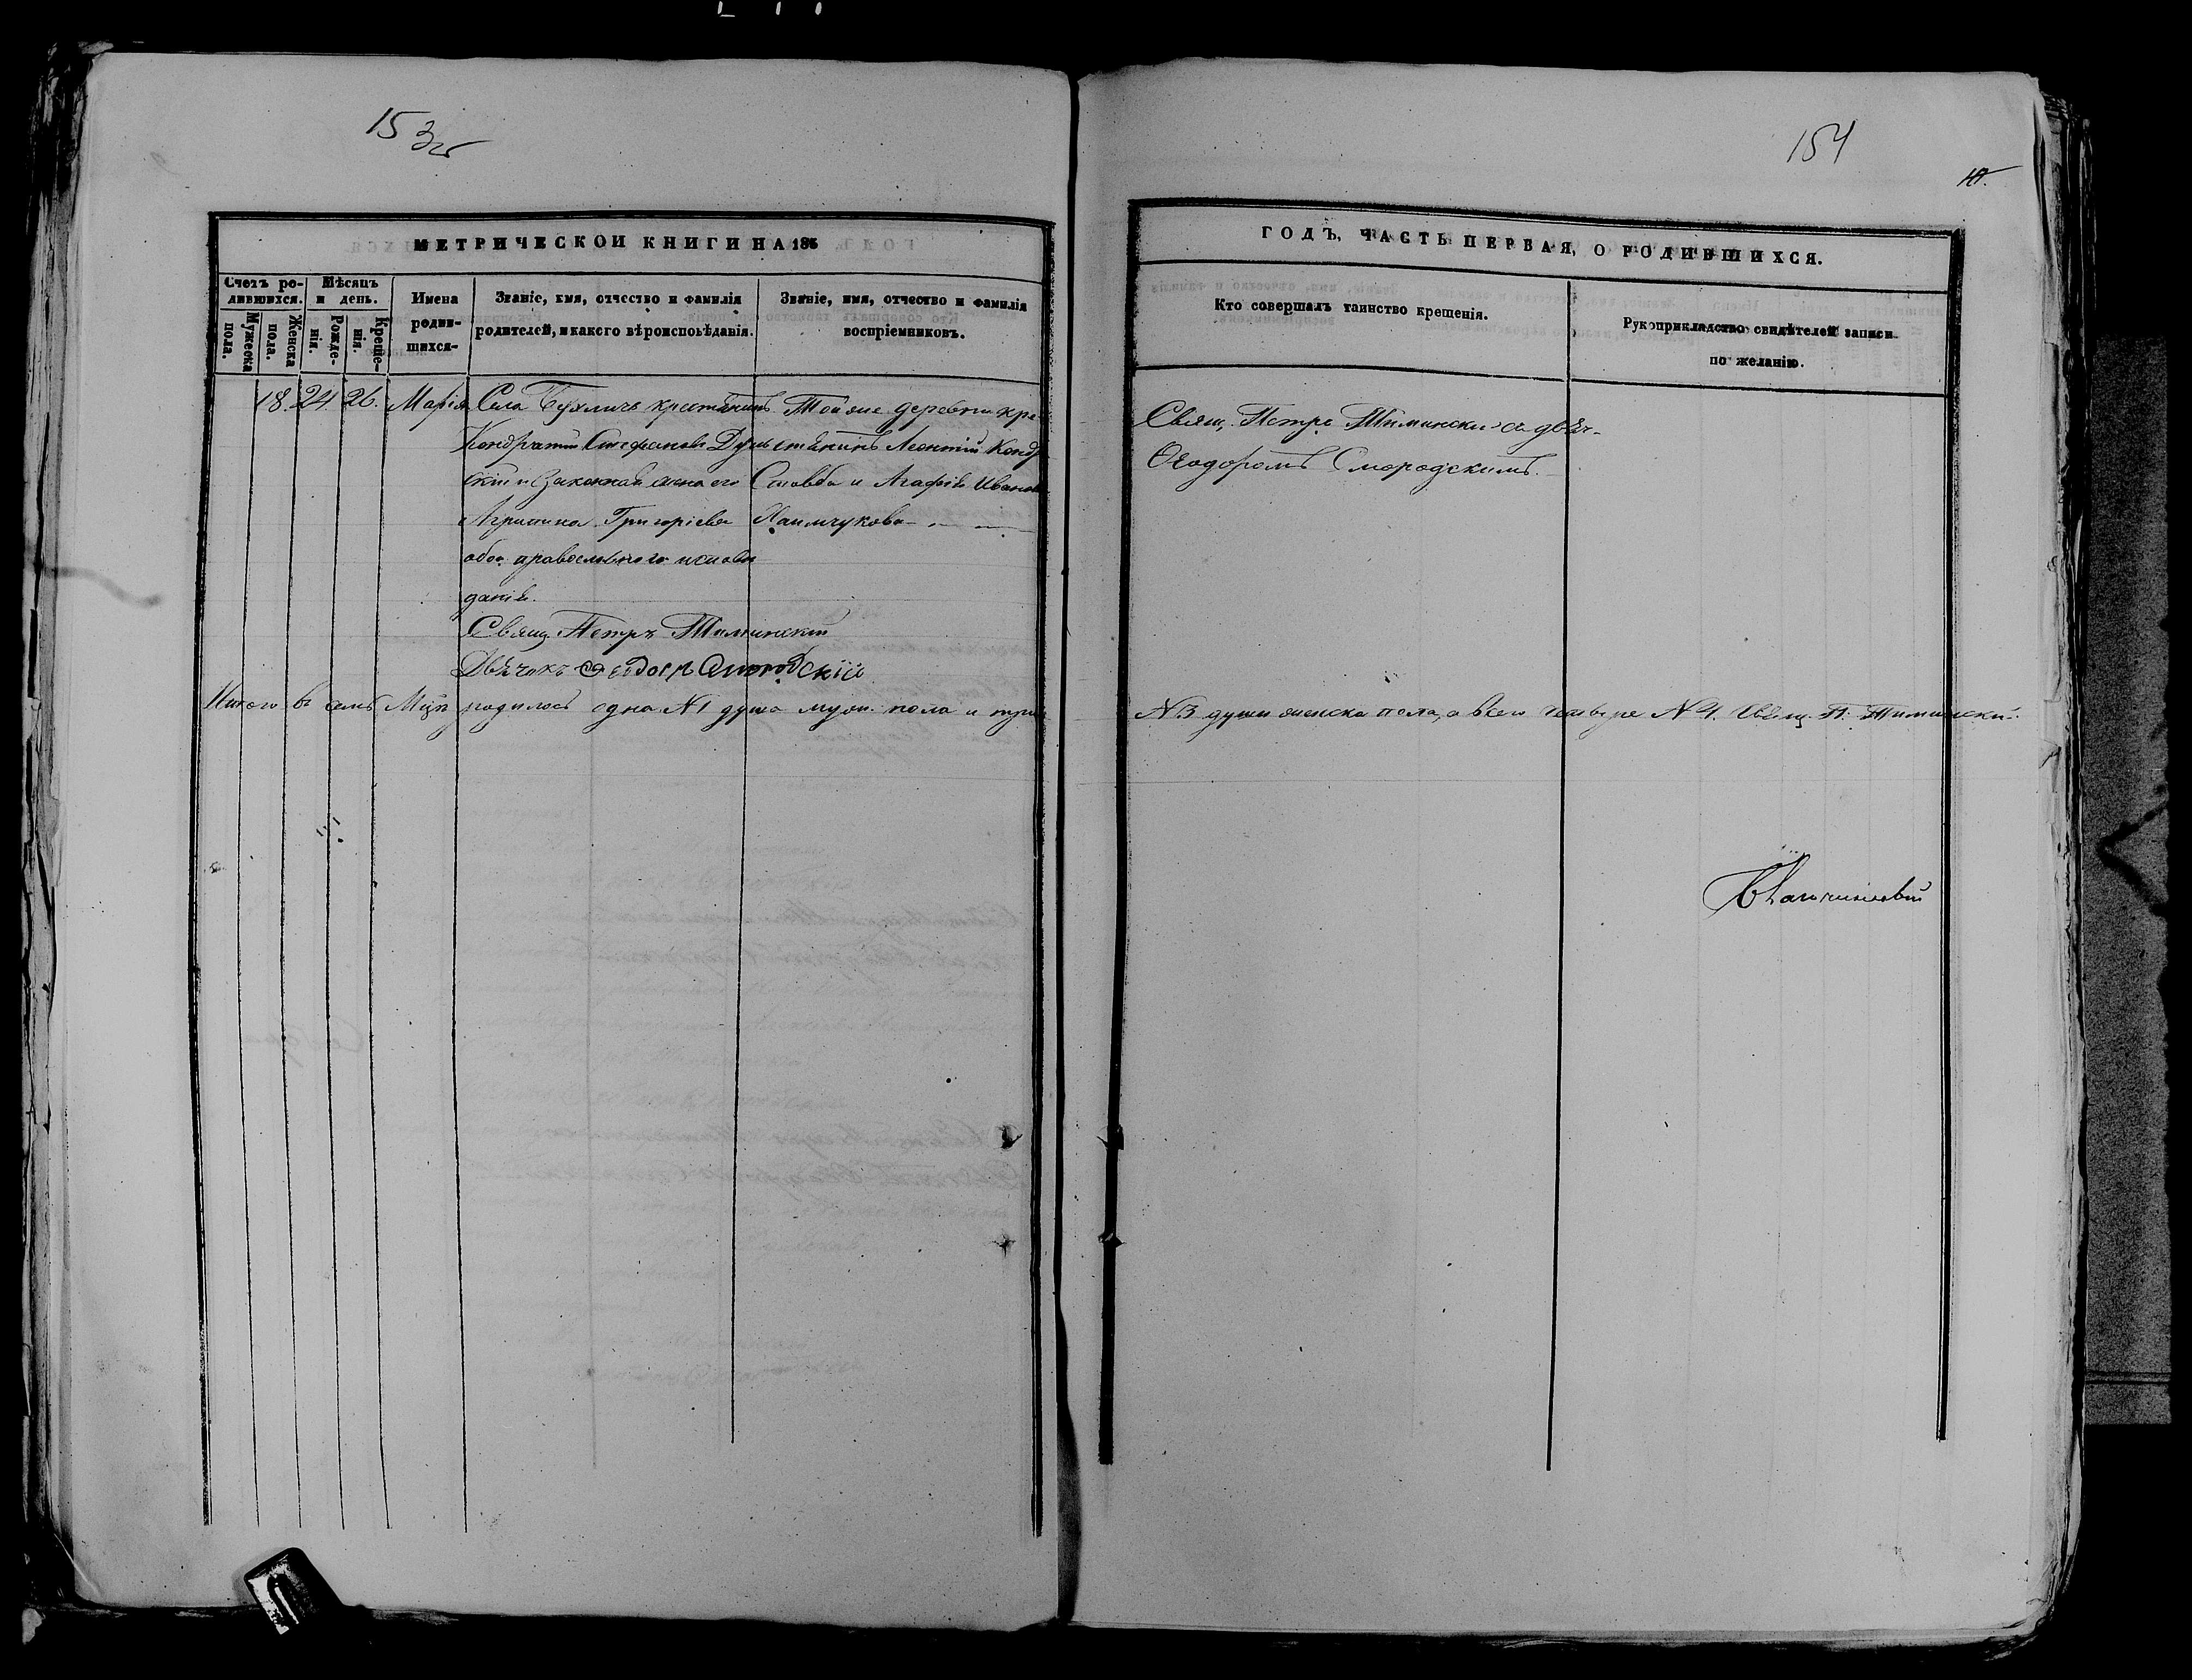 153об
154
МЕТРИЧЕСКОЙ КНИГИ НА 186
ГОДЪ, ЧАСТЬ ПЕРВАЯ, О РОДИВШИХСЯ.
Счетъ ро-
дившихся.
Мужеска
пола.
Женска
пола.
Мѣсяцъ
и день.
Рожде-
нія.
Креще-
нія.
Имена
родив-
шихся-
Званіе, имя, отчество и фамилія
родителей, и какого вѣроисповѣданія.
Званіе, имя, отчество и фамилія
воспріемниковъ.
Кто совершалъ таинство крещенія.
Рукоприкладство свидѣтелей записи
по желанію.
18. 24. 26. Марія
Села крестянинъ
Кондратій Стефановъ
и законная жена его
Агрипина Григоріева
обое православного исповѣ
данія.
Тойже деревни кре-
стянинъ Леонтій Конд
и Агафія Иванова
Свящ. Петръ Тиминскій
Дьячокъ Ѳеодоръ Смородскій
Свящ. Петръ Тиминскій съ дьяч-
Ѳеодоромъ Смородскимъ.
Итого въ семъ родилось одна №1 душа муж. пола и три
№3 души женска пола, а всего четыре №4. Свящ. П. Тиминскій